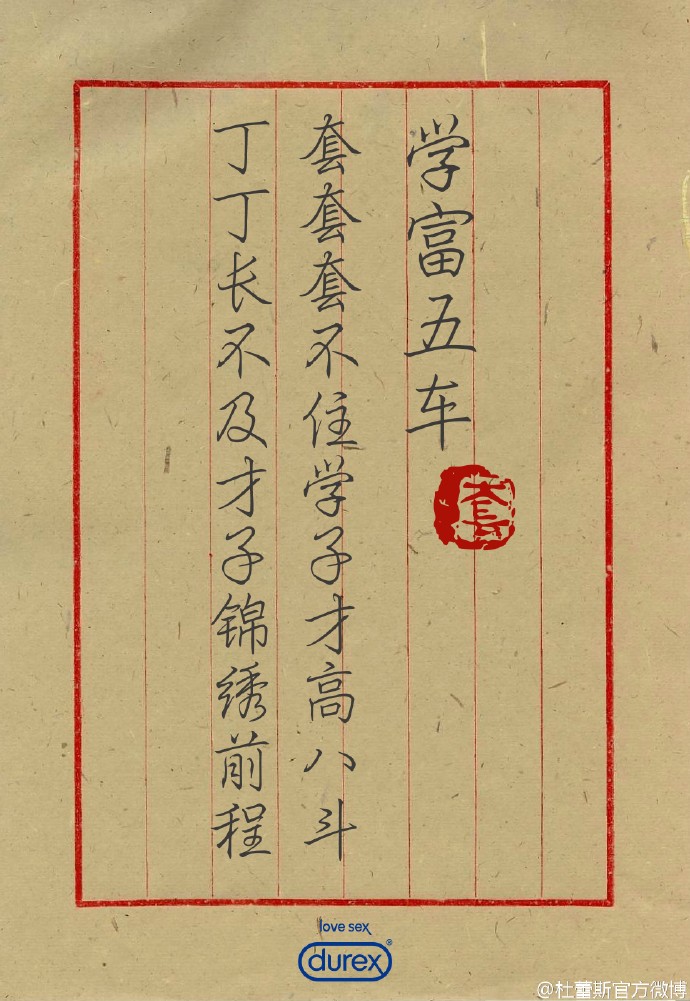 学富五车
套套套不住学子才高八斗
丁丁长不及才子锦绣前程
套
love sex
durex®
@杜蕾斯官方微博